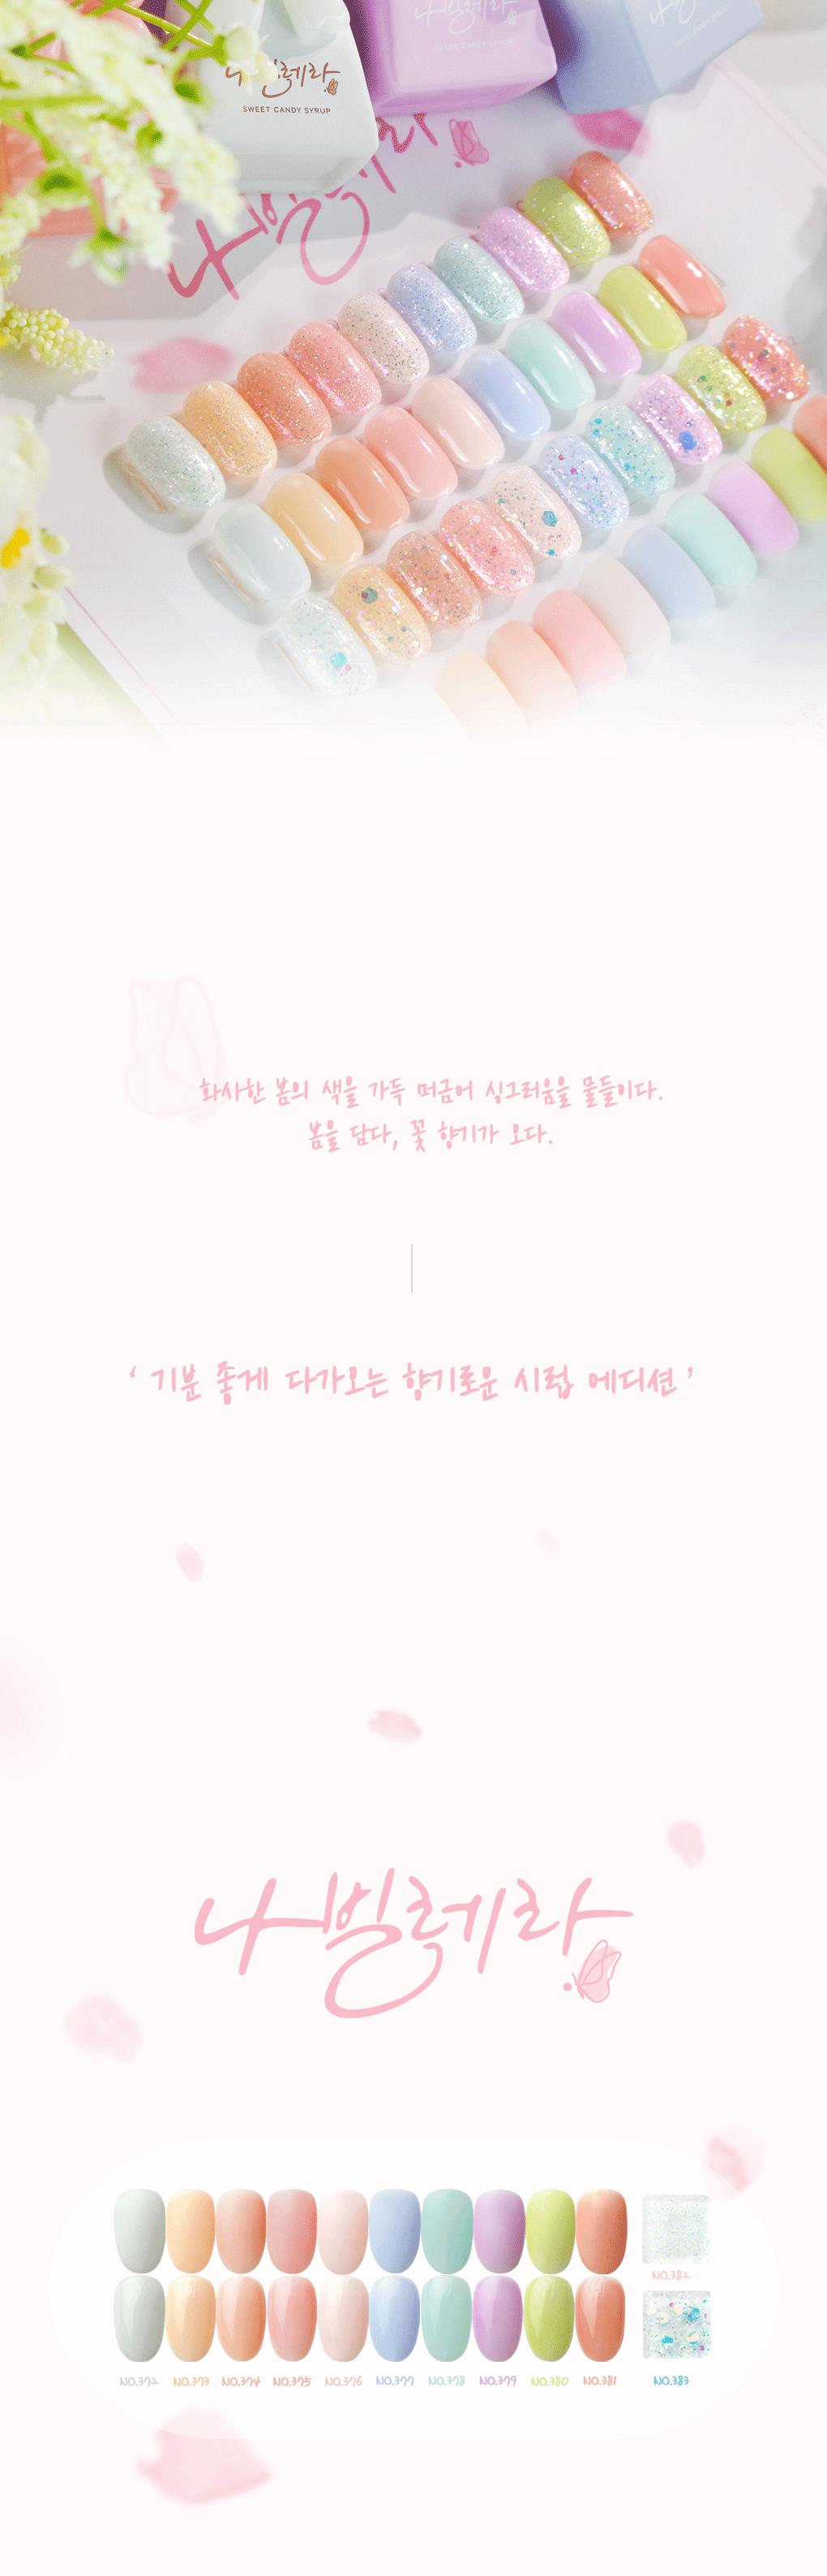 나빌레라
SWEET CANDY SYRUP
나빌
SWEET CANDY SYRUP
나빌레라
SWEET CANDY SYRUP
나빌레라
화사한 봄의 색을 가득 머금어 싱그러움을 물들이다.
봄을 담다, 꽃 향기가 오다.
‘ 기분 좋게 다가오는 향기로운 시럽 에디션 ’
나빌레라
NO.382
NO.372 NO.373 NO.374 NO.375 NO.376 NO.377 NO.378 NO.379 NO.380 NO.381 NO.383